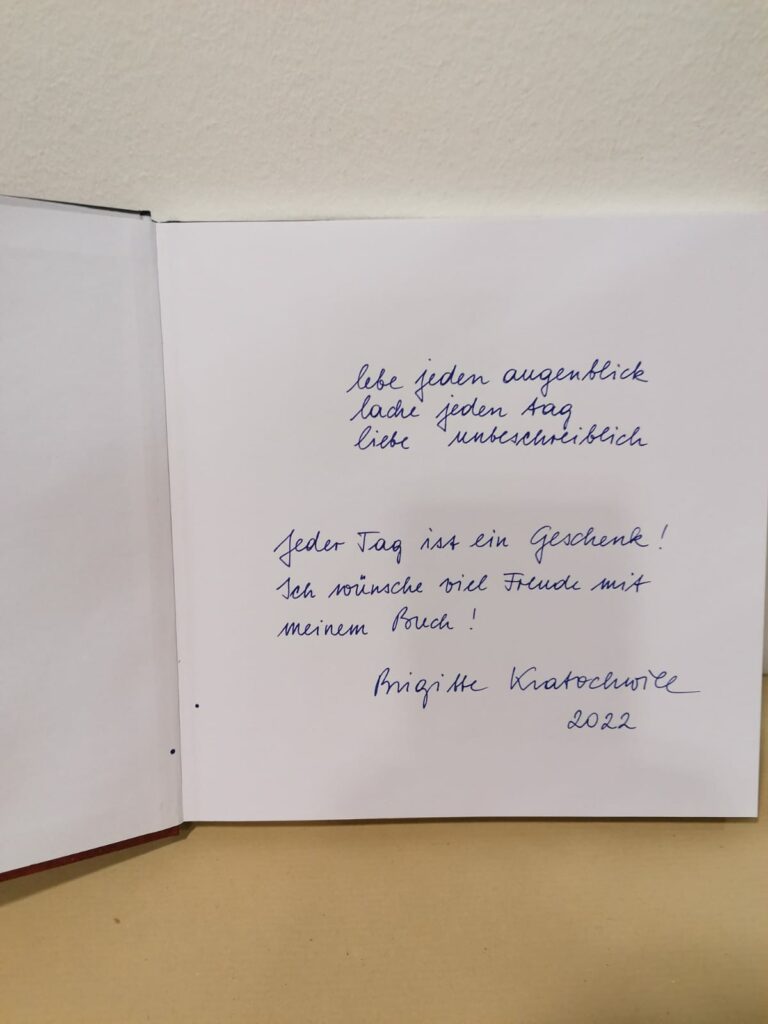 lebe jeden augenblick
lache jeden tag
liebe unbeschreiblich
Jeder Tag ist ein Geschenk!
Ich wünsche viel Freude mit
meinem Buch!
Brigitte Kratochwill
2022